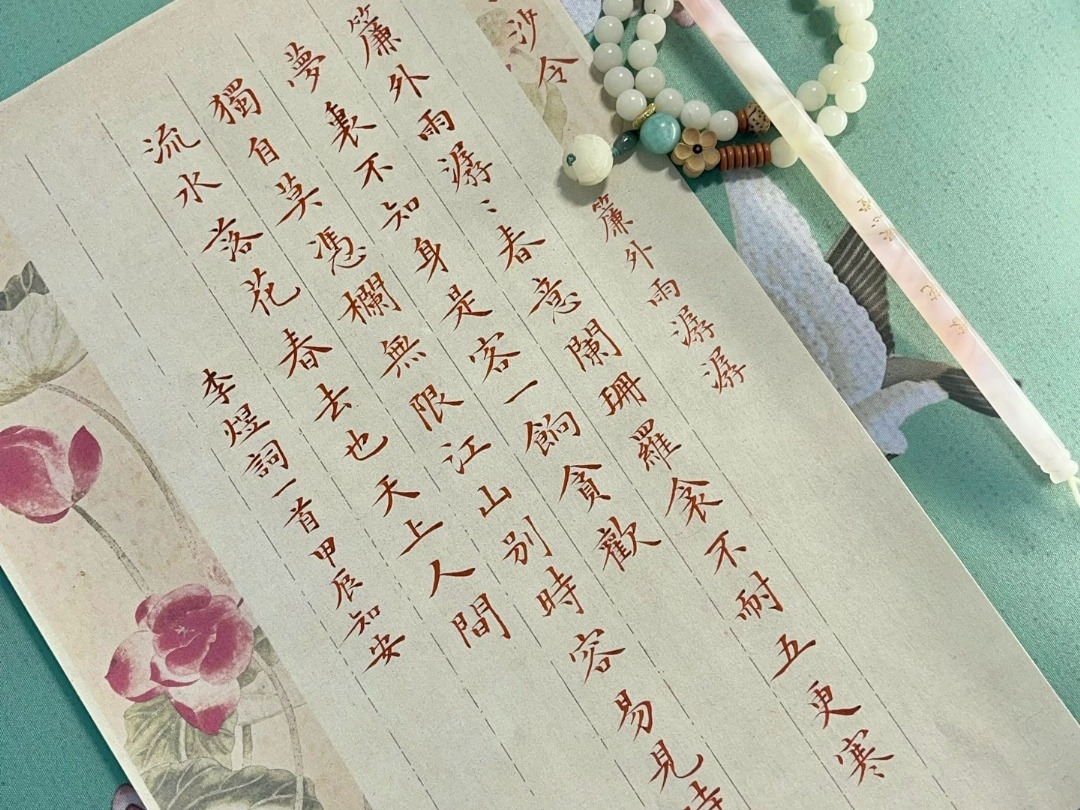 沙令
簾外雨潺潺
簾外雨潺〻春意闌珊羅衾不耐五更寒
夢裏不知身是客一餉貪歡
獨自莫憑欄無限江山別時容易見時
流水落花春去也天上人間
李煜詞一首甲辰知安